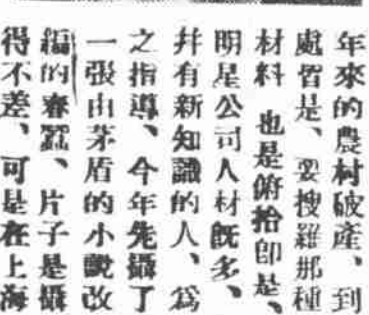 年來的農村破產、到
處皆是、要搜羅那種
材料 也是俯拾即是、
明星公司人材旣多、
幷有新知識的人、爲
之指導、今年先攝了
一張由茅盾的小說改
編的春蠶、片子是攝
得不差、可是在上海